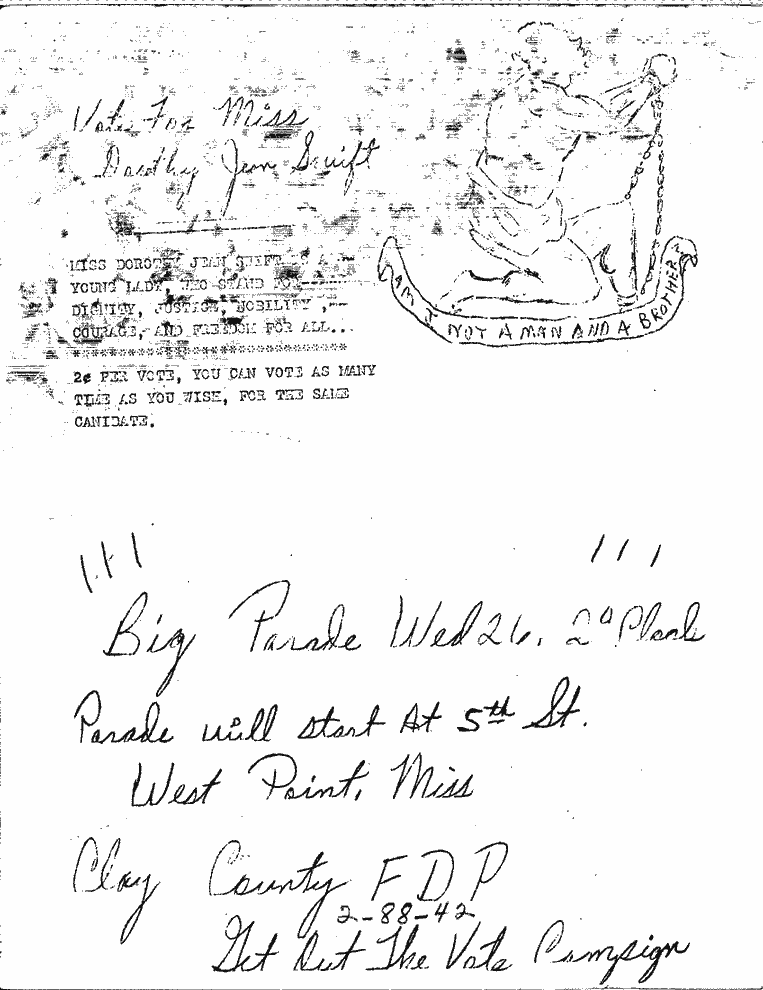 Vote For Miss
Dorothy Jean Swift
MISS DOROTHY JEAN SWIFT IS A
YOUNG LADY, WHO STAND FOR-----
DIGNITY, JUSTICE, NOBILITY ,--
COURAGE, AND FREEDOM FOR ALL...
******************************
2¢ PER VOTE, YOU CAN VOTE AS MANY
TIME AS YOU WISH, FOR THE SAME
CANIDATE.
AM I NOT A MAN AND A BROTHER
Big Parade Wed 26, 2
Parade will start At 5th St.
West Point, Miss
Clay County F D P
2-88-42
Get Out The Vote Campaign